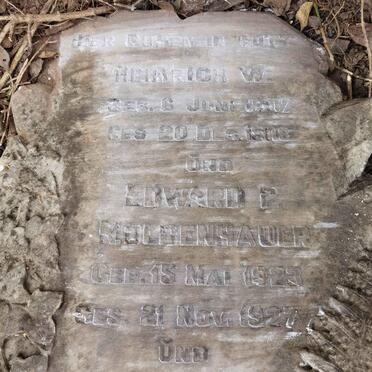 HIER RUHEN IN GOTT
HEINRICH W.
GEB. 6 JUNI
GES. 20 DEZ.
UND
EDWARD P.
MOLDENHAUER
GEB. 15 MAI 1923
GES. 21 NOV. 1927
UND